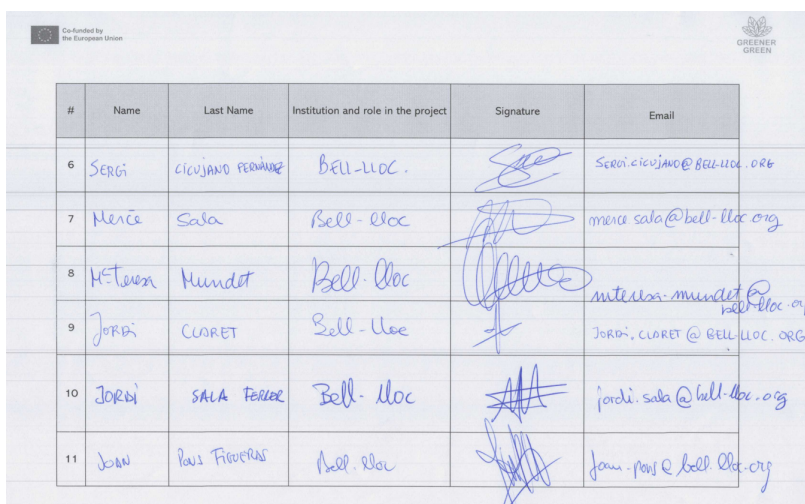 Co-funded by
the European Union
GREENER
GREEN
# Name Last Name Institution and role in the project Signature Email
6 SERGi CICUJANO FERNÁNDEZ BELL-LLOC. SERGI.CICUJANO@BELL-LLOC.ORG
7 Mercè Sala Bell-lloc merce.sala@bell-lloc.org
8 Mª Teresa Mundet Bell-lloc mteresa.mundet@
bell-lloc.org
9 JORDI CLARET Bell-lloc JORDI.CLARET@BELL-LLOC.ORG
10 JORDI SALA FERRER Bell-lloc jordi.sala@bell-lloc.org
11 JOAN PONS FIGUERAS Bell.lloc joan.pons@bell.lloc.org